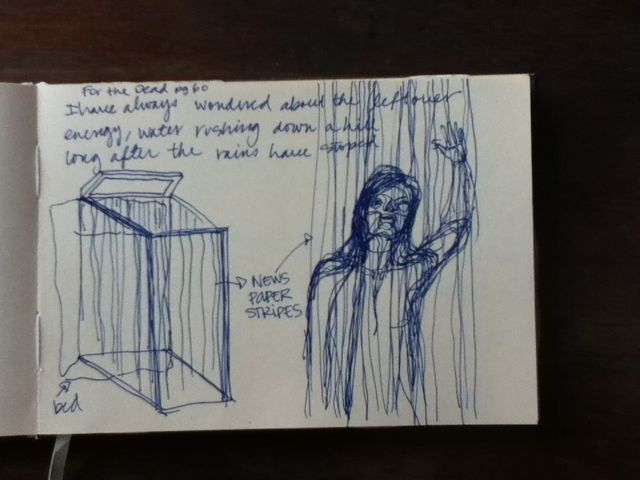 For the Dead pg 60
I have always wondered about the leftover
energy, water rushing down a hill
long after the rains have stopped
NEWS
PAPER
STRIPES
bed